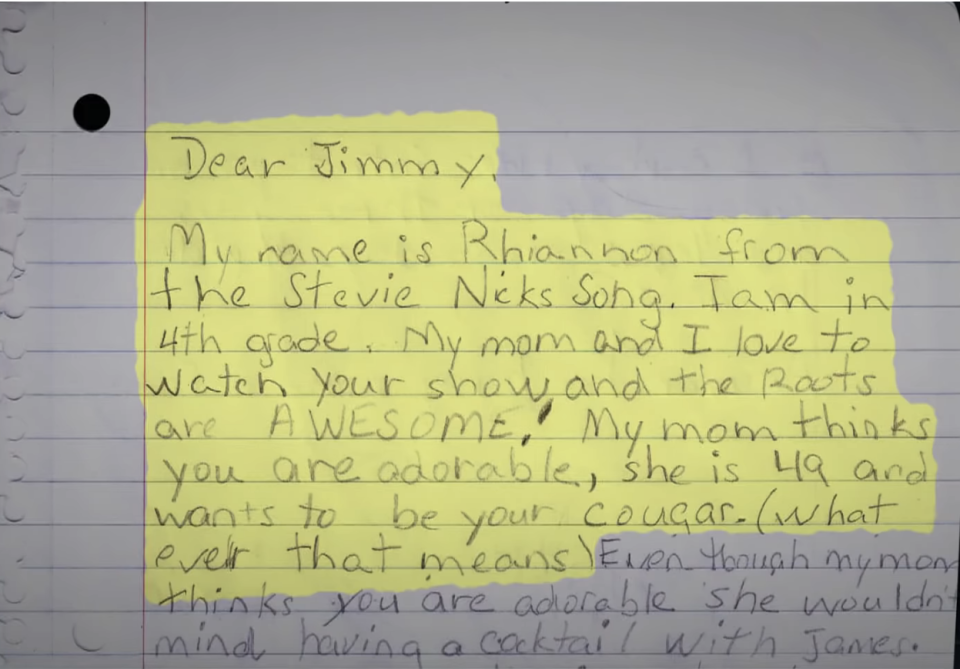 Dear Jimmy,
My name is Rhiannon from
the Stevie Nicks Song. I am in
4th grade. My mom and I love to
watch your show, and the Roots
are AWESOME! My mom thinks
you are adorable, she is 49 and
wants to be your cougar. (what
ever that means) Even though my mom
thinks you are adorable she wouldn't
mind having a cocktail with James.